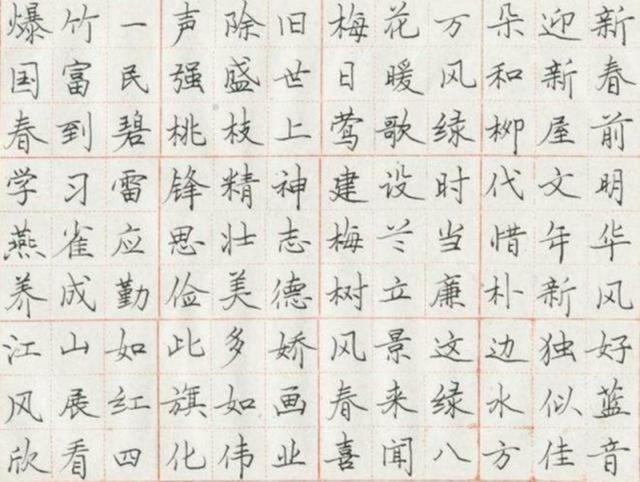 爆竹一声除旧梅花万朵迎新
国富民强盛世日暖风和新春
春到碧桃枝上莺歌绿柳屋前
学习雷锋精神建设时代文明
燕雀应思壮志梅兰当惜年华
养成勤俭美德树立廉朴新风
江山如此多娇风景这边独好
风展红旗如画春来绿水似蓝
欣看四化伟业喜闻八方佳音